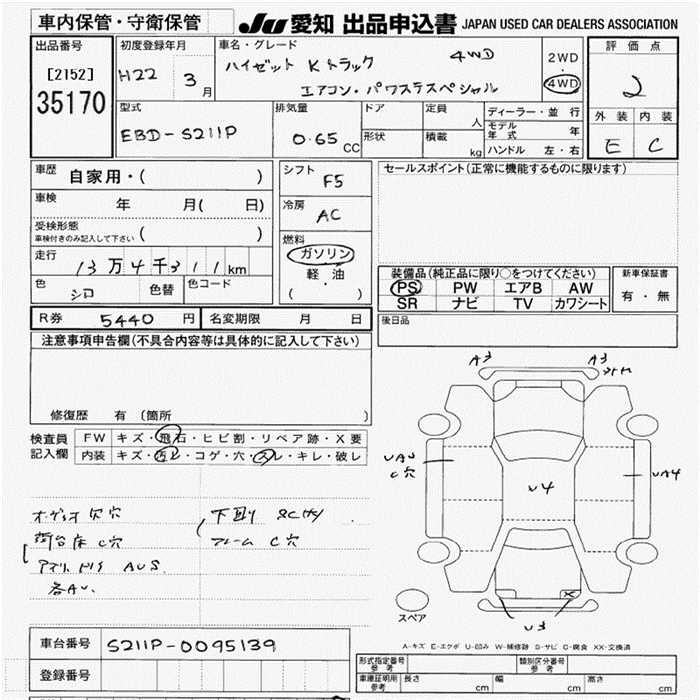 車内保管・守衛保管
JU 愛知 出品申込書 JAPAN USED CAR DEALERS ASSOCIATION
出品番号
[2152]
35170
初度登録年月
H22 3月
車名・グレード
ハイゼット Kトラック 4WD
エアコン・パワステスペシャル
2WD
・
4WD
評価点
2
外装 内装
E C
型式
EBD-S211P
排気量
0.65 CC
ドア
形状
定員 人
積載 kg
ディーラー・並行
モデル年式 年
ハンドル 左・右
車歴 自家用・( )
車検 年 月( 日)
受検形態
車検付きのみ記入して下さい ( )
走行 13万4千311km
色 シロ 色替 色コード
シフト
F5
冷房
AC
燃料
ガソリン
軽油
( ・ )
セールスポイント(正常に機能するものに限ります)
装備品(純正品に限り○をつけてください)
PS PW エアB AW
SR ナビ TV カワシート
新車保証書
有・無
後日品
R券 5440 円 名変期限 月 日
注意事項申告欄(不具合内容等は具体的に記入して下さい)
修復歴 有 (箇所 )
検査員
記入欄
FW キズ・飛石・ヒビ割・リペア跡・X要
内装 キズ・汚レ・コゲ・穴・スレ・キレ・破レ
オーディオ欠穴
荷台床C穴
AUS
各AU.
下廻り SC
フレーム C穴
A3
A3
UA4
C穴
U4
UA4
X
U3
スペア
A-キズ E-エクボ U-凹み W-補修跡 S-サビ C-腐食 XX-交換済
車台番号 S211P-0095139
登録番号
形式指定番号
参考
類別区分番号
参考
車庫証明用
参考
長さ cm 幅 cm 高さ cm